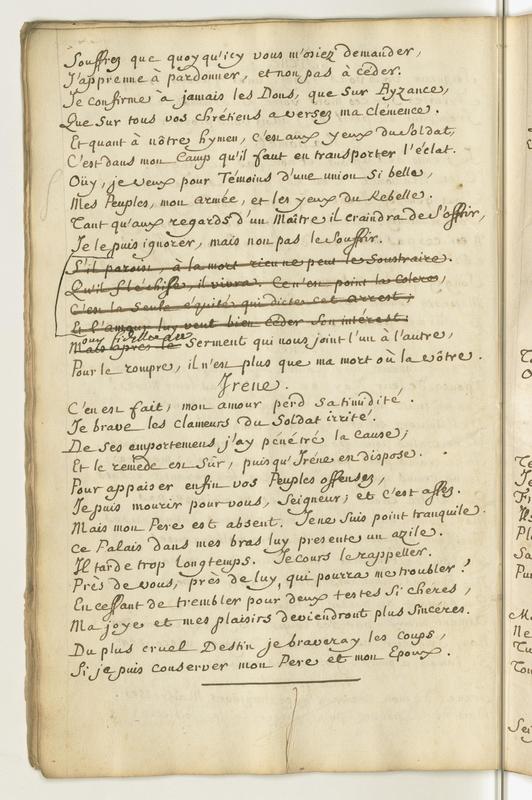 Souffrez que quoyqu'icy vous m'osiez demander,
J'apprenne à pardonner, et non pas à ceder.
Je confirme à jamais les Dons, que sur Byzance,
Que sur tous vos chrétiens a versez ma clémence.
Et quant à nôtre hymen, c'est aux yeux du Soldat,
C'est dans mon Camp qu'il faut en transporter l'éclat.
Oüy, je veux pour Témoins d'une union si belle,
Mes Peuples, mon armée, et les yeux du Rebelle.
Tant qu'aux regards d'un Maître il craindra de s'offrir,
Je le puis ignorer, mais non pas le Souffrir.
S'il paroist, à la mort rien ne peut le Soustraire.
Qu'il fléchisse, il vivra. Ce n'est point la Colere,
C'est la Seule équité qui dicte cet arrest;
Et l'amour luy veut bien ceder Son intérest.
Mais après le Serment qui nous joint l'un à l'autre,
Pour le rompre, il n'est plus que ma mort où la vôtre.
Irene.
C'en est fait, mon amour perd sa timidité.
Je brave les clameurs du Soldat irrité.
De ses emportemens j'ay pénétré la cause;
Et le reméde est Sûr, puisqu'Iréne en dispose.
Pour appaiser enfin vos Peuples offensez,
Je puis mourir pour vous, Seigneur; et c'est assez.
Mais mon Pere est absent. Je ne Suis point tranquile.
Ce Palais dans mes bras luy presente un azile.
Il tarde trop longtemps. Je cours le rappeller.
Près de vous, près de luy, qui pourra me troubler?
En cessant de trembler pour deux testes Si cheres,
Ma joye et mes plaisirs deviendront plus Sincéres.
Du plus cruel Destin je braveray les coups,
Si je puis conserver mon Pere et mon Epoux.